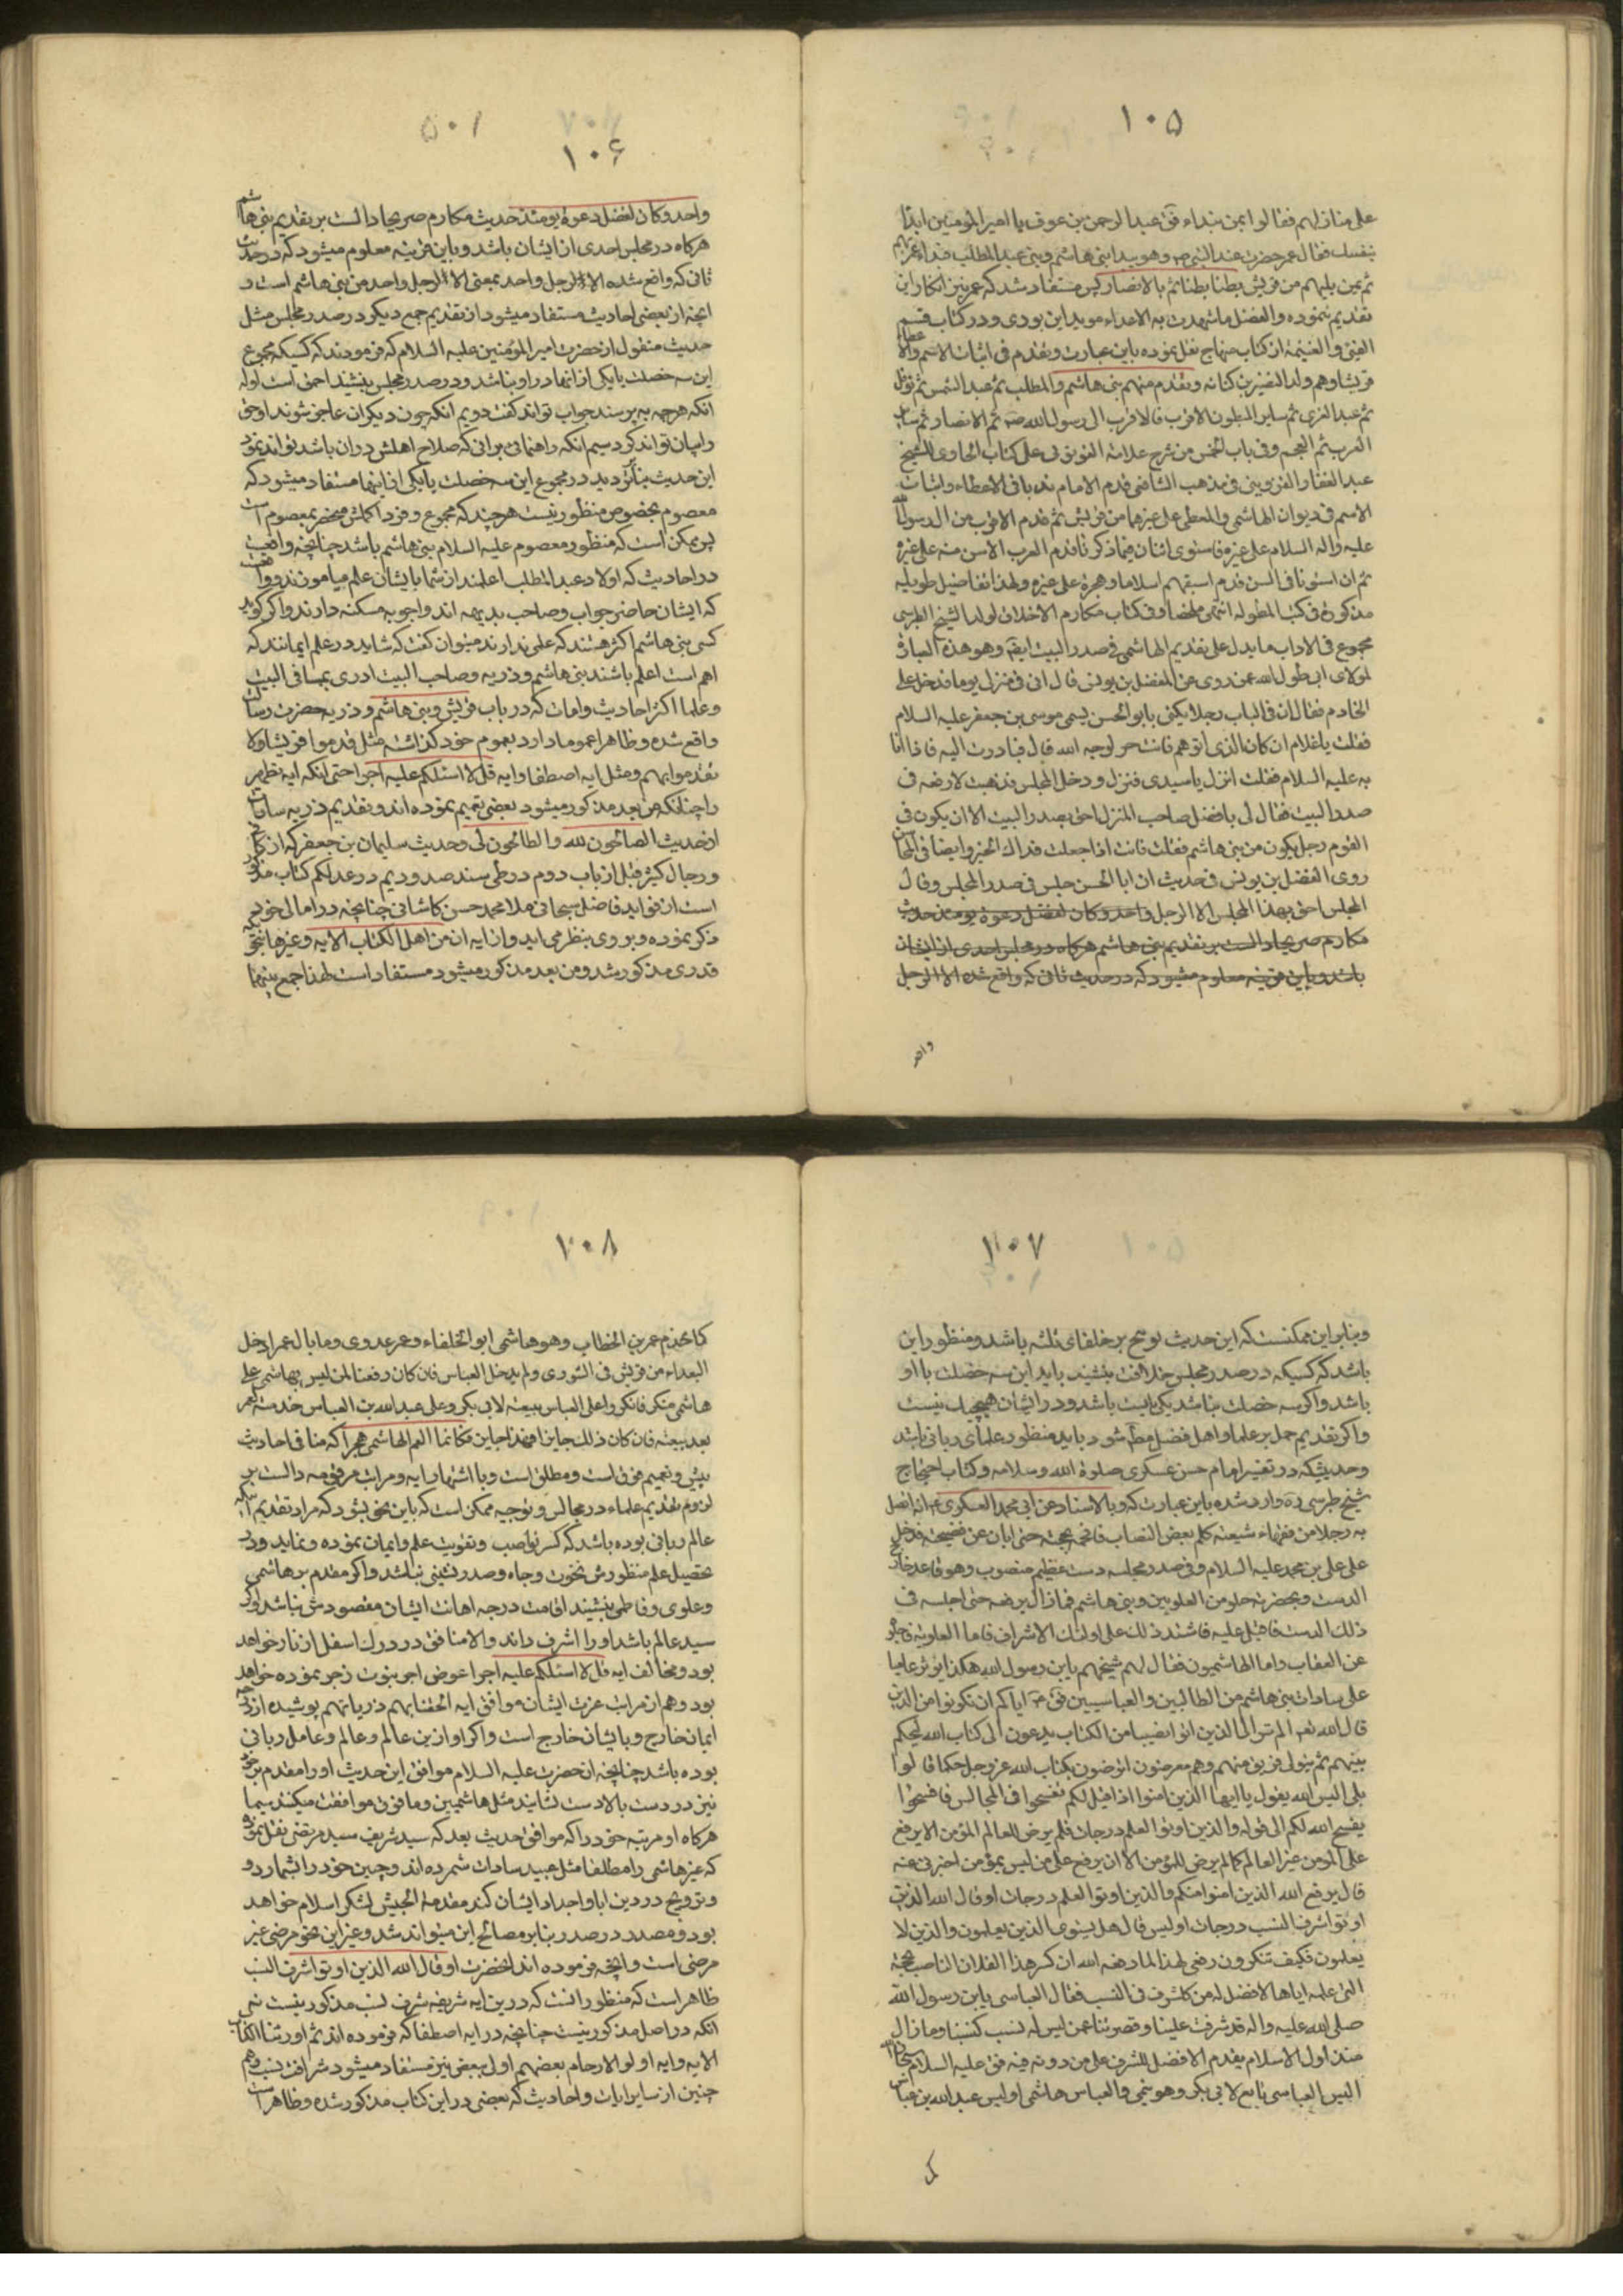 ۱۰۵
علی منازلهم فقالوا بمن نبداء فق عبدالرحمن بن عوف یا امیرالمؤمنین ابدأ
بنفسک فقال عمر حضرت عند النبی ص وهو یبدا ببنی هاشم وبنی عبدالمطلب فبداء عمر بهم
ثم بمن یلیهم من قریش بطنا بطنا ثم بالانصار پس مستفاد شد که عمر نیز انکار این
تقدیم ننموده والفضل ما شهدت به الاعداء موید این بودی ودر کتاب قسم
الفئ والغنیمة از کتاب منهاج نقل نموده باین عبارت ویقدم فی اثبات الاسم والاعطاء
قریشا وهم ولد النضر بن کنانه ویقدم منهم بنی هاشم والمطلب ثم عبدالشمس ثم نوفل
ثم عبدالعزی ثم سایر البطون الاقرب فالاقرب الی رسول الله ص ثم الانصار ثم سایر
العرب ثم العجم وفی باب الخمس من شرح علامة القونوی علی کتاب الحاوی للشیخ
عبدالغفار القزوینی فی مذهب الشافعی قدم الامام ندبا فی الاعطاء واثبات
الاسم فی دیوان الهاشمی والمطلبی علی غیرهما من قریش ثم قدم الاقرب من الرسول
علیه واله السلام علی غیره فاستوی اثنان فیما ذکرنا قدم العرب الاسن منه علی غیره
ثم ان استویا فی السن قدم اسبقهم اسلاما وهجرة علی غیره ولهذا تفاصیل طویله
مذکورة فی کتب المطوله انتهی ملخصا وفی کتاب مکارم الاخلاق لولد الشیخ الطبرسی
مجموع فی الاداب ما یدل علی تقدیم الهاشمی فی صدر البیت ایضا وهو هذه العبارة
لمولای ابی طول الله عمره روی عن الفضل بن یونس قال انی فی منزلی یوما فدخل علی
الخادم فقال ان فی الباب رجلا یکنی بابو الحسن یسمی موسی بن جعفر علیه السلام
فقلت یا غلام ان کان الذی اتوهم فانت حر لوجه الله قال فبادرت الیه فاذا انا
به علیه السلام فقلت انزل یا سیدی فنزل ودخل المجلس فذهبت لارفعه فی
صدر البیت فقال لی یا فضل صاحب المنزل احق بصدر البیت الا ان یکون فی
القوم رجل یکون من بنی هاشم فقلت فانت اذا جعلت فداک الخبر وایضا فی المحاسن
روی الفضل بن یونس فی حدیث ان ابا الحسن جلس فی صدر المجلس وقال
المجلس احق بهذا المجلس الا الرجل واحد وکان لفضل دعوة یومئذ حدیث
مکارم صریحا دالست بر تقدیم بنی هاشم هرکاه در مجلس احدی از ایشان
باشد وباین قرینه معلوم میشود که در حدیث ثانی که واقع شده الا الرجل
واحد
۱۰۶
واحد وکان لفضل دعوة یومئذ حدیث مکارم صریحا دالست بر تقدیم بنی هاشم
هرکاه در مجلس احدی از ایشان باشد وباین قرینه معلوم میشود که در حدیث
ثانی که واقع شده الا الرجل واحد بمعنی الا الرجل واحد من بنی هاشم است و
انچه از بعضی احادیث مستفاد میشود از تقدیم جمع دیکر در صدر مجلس مثل
حدیث منقول از حضرت امیرالمؤمنین علیه السلام که فرمودند که کسیکه مجموع
این سه خصلت یا یکی از انها در او نباشد ودر صدر مجلس بنشیند احمق است اول
انکه هرچه بپرسند جواب تواند کفت دویم انکه چون دیکران عاجز شوند او حق
را بیان تواند کرد سیم انکه راهنمائی برائی که صلاح اهلش در ان باشد تواند نمود
این حدیث بنا بر تردید در مجموع این سه خصلت یا یکی از اینها مستفاد میشود که
معصوم بخصوص منظور نیست هرچند که مجموع وفرد اکملش منحصر بمعصوم است
پس ممکن است که منظور معصوم علیه السلام بنی هاشم باشد چنانچه واقعست
در احادیث که اولاد عبدالمطلب اعلمند از شما بایشان علم میاموزند وواقعست
که ایشان حاضر جواب وصاحب بدیهه اند واجوبه مسکته دارند واکر کوید
کسی بنی هاشم اکثر هستند که علمی ندارند میتوان کفت که شاید در علم ایمانند که
اهم است اعلم باشند بنی هاشم وذریه وصاحب البیت ادری بما فی البیت
وعلما اکثر احادیث وایات که در باب قریش وبنی هاشم وذریه حضرت رسالت
واقع شده وظاهرا عموما دارد بعموم خود کذاشته مثل قدموا قریشا ولا
تقدموا بهم ومثل ایه اصطفا وایه قل لا اسئلکم علیه اجرا حتی انکه ایه تطهیر
را چنانکه من بعد مذکور میشود بعضی تتمیم نموده اند وتقدیم ذریه سادات
از حدیث الصالحون لله والطالحون لی وحدیث سلیمان بن جعفر که از کتاب
ورجال کبیر قبل از باب دوم در طی سند صدور دیم در عدل کم کتاب مذکور
است از فواید فاضل سبحانی ملا محمد حسن کاشانی چنانچه در امالی خود
ذکر نموده وبروی بنظر می اید وازایه ان من اهل الکتاب الایه وغیرها بنحو
قدری مذکور شد ومن بعد مذکور میشود مستفاد است لهذا جمع بینهما
۱۰۷
وبنابراین ممکنست که این حدیث توضح بر خلفای ثلثه باشد ومنظور این
باشد که کسیکه در صدر مجلس خلافت بنشیند باید این سه خصلت با او
باشد واکر سه خصلت نباشد یکی بایست باشد ودر ایشان هیچیک نیست
واکر تقدیم حمل بر علما واهل فضل مطلق شود باید منظور علمای ربانی باشد
وحدیثیکه در تفسیر امام حسن عسکری صلوة الله وسلامه وکتاب احتجاج
شیخ طبرسی ره وارد شده باین عبارت که وبالاسناد عن ابی محمد العسکری ع انه اتصل
به رجلا من فقهاء شیعته کلم بعض النصاب فافحمه بحجته حتی ابان عن فضیحته فدخل
علی علی بن محمد علیه السلام وفی صدر مجلسه دست عظیم منصوب وهو قاعد خارج
الدست وبحضرته خلق من العلویین وبنی هاشم فما زال یرفعه حتی اجلسه فی
ذلک الدست فاقبل علیه فاشتد ذلک علی اولئک الاشراف فاما العلویة فاجلوه
عن العتاب واما الهاشمیون فقال لهم شیخهم یابن رسول الله هکذا تؤثر عامیا
علی سادات بنی هاشم من الطالبین والعباسیین فق ع ایاکم ان تکونوا من الذین
قال الله تعه الم تر الی الذین اوتوا نصیبا من الکتاب یدعون الی کتاب الله لیحکم
بینهم ثم یتولی فریق منهم وهم معرضون اترضون بکتاب الله عز وجل حکما قالوا
بلی الیس الله یقول یا ایها الذین امنوا اذا قیل لکم تفسحوا فی المجالس فافسحوا
یفسح الله لکم الی قوله والذین اوتوا العلم درجات فلم یرض للعالم المؤمن الا یرفع
علی المومن غیر العالم کما لم یرض للمؤمن الا ان یرفع علی من لیس بمؤمن اخبرنی عنه
قال یرفع الله الذین امنوا منکم والذین اوتوا العلم درجات او قال الله الذین
اوتوا شرف النسب درجات اولیس قال هل یستوی الذین یعلمون والذین لا
یعلمون فکیف تنکرون رفعی لهذا لما رفعه الله ان کسر هذا الفلان الناصب بحجة
التی علمه ایاها لافضل له من کل شرف فی النسب فقال العباسی یابن رسول الله
صلی الله علیه واله قد شرفت علینا وقصرتنا عمن لیس له نسب کنسبنا وما زال
منذ اول الاسلام یقدم الافضل للشرف علی من دونه فیه فق علیه السلام سبحان الله
الیس العباسی بایع لابی بکر وهو تیمی والعباس هاشمی اولیس عبدالله بن عباس
کا
۱۰۸
کان یخدم عمر بن الخطاب وهو هاشمی ابو الخلفاء وعمر عدوی وما بال عمر ادخل
البعداء من قریش فی الشوری ولم یدخل العباس فان کان رفعنا لمن لیس بهاشمی علی
هاشمی منکر فانکروا علی العباس بیعته لابی بکر وعلی عبدالله بن العباس خدمته لعمر
بعد بیعته فان کان ذلک جایزا فهذا جایز فکانما القم الهاشمی حجرا که منافی احادیث
پیش وتعمیم فوق است ومطلق است وبا اشتهار ایه ومراتب مرقومه دالست بر
لزوم تقدیم علماء در مجالس وتوجیه ممکن است که باین نحو بشود که مراد تقدیم انکه
عالم ربانی بوده باشد که کسر نواصب وتقویت علم وایمان نموده ونماید ودر
تحصیل علم منظورش نخوت وجاه وصدرنشینی نباشد واکر مقدم بر هاشمی
وعلوی وفاطمی بنشیند اقامت درجه اهانت ایشان مقصودش نباشد واکر
سید عالم باشد او را اشرف داند والا منافق در درک اسفل از نار خواهد
بود ومخالف ایه قل لا اسئلکم علیه اجرا عوض اجر نبوت زجر نموده خواهد
بود وهم از مراتب عزت ایشان موافق ایه الحقنا بهم ذریاتهم پوشیده از درجه
ایمان خارج وبایشان خارج است واکر او ازین عالم وعالم وعامل ربانی
بوده باشد چنانچه انحضرت علیه السلام موافق این حدیث او را مقدم بر خود
نیز در دست بالادست نشانیدند مثل هاشمیین ومافوق موافقت میکند سیما
هرکاه او مرتبه خود را که موافق حدیث بعد که سید شریف سید مرتضی نقل نموده
که غیر هاشمی را مطلقا مثل عبید سادات شمرده اند وچنین خود را بشمارد و
وترویج در دین ابا واجداد ایشان کند مقدمة الجیش لشکر اسلام خواهد
بود ومصدر در صدر بنا بر مصالح این میتواند شد وغیر این نحو مرضی غیر
مرضی است وانچه فرموده اند انحضرت او قال الله الذین اوتوا شرف النسب
ظاهر است که منظور انست که درین ایه شریفه شرف نسب مذکور نیست نمی
انکه در اصل مذکور نیست چنانچه در ایه اصطفا که فرموده اند ثم اورثنا الکتاب
الایه وایه اولو الارحام بعضهم اولی ببعض نیز مستفاد میشود شرافت نسب وهم
چنین از سایر ایات واحادیث که بعضی در این کتاب مذکور شده وظاهر است